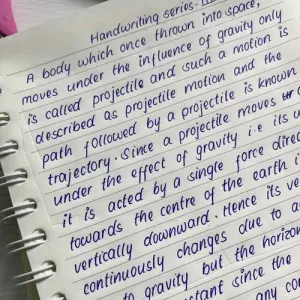 Handwriting series:
A body which once thrown into space,
moves under the influence of gravity only
is called projectile and such a motion is
described as projectile motion and the
path followed by a projectile is known
trajectory. Since a projectile moves
under the effect of gravity i.e its
it is acted by a single force
towards the centre of the earth
vertically downward. Hence its
continuously changes due to
to gravity but the
since the
any